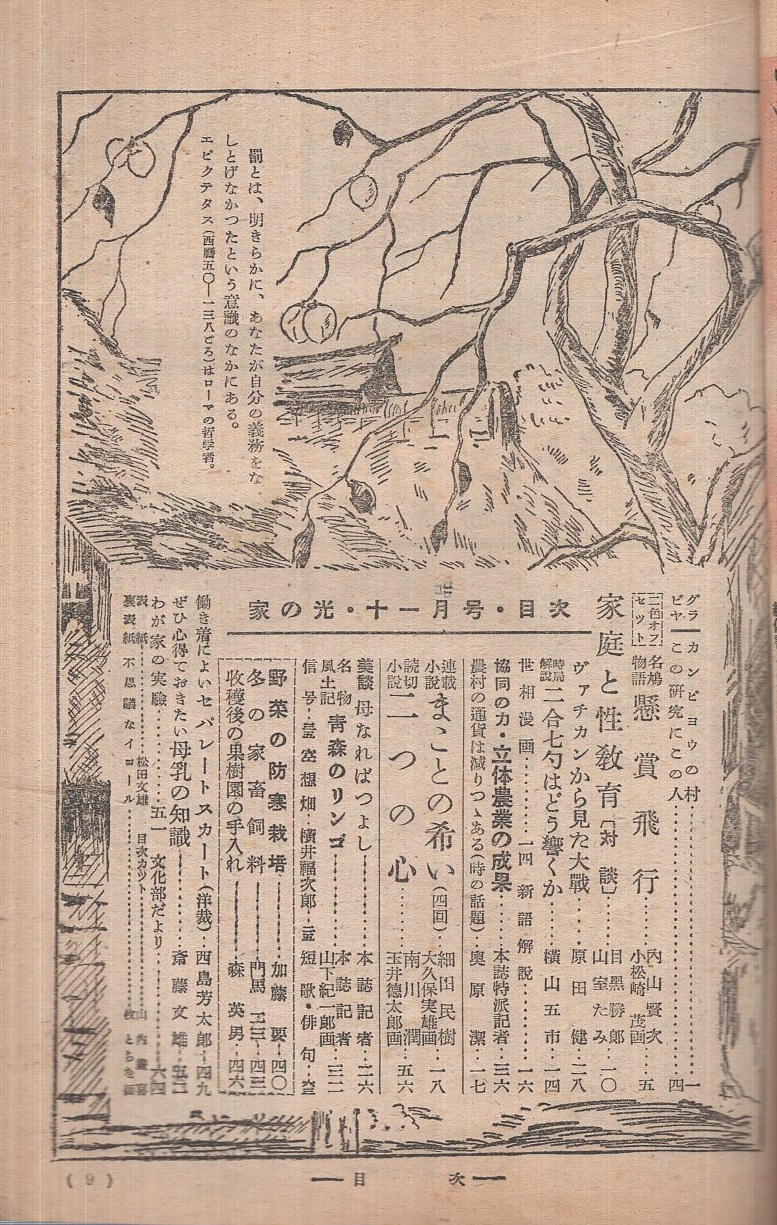 罰とは、明きらかに、あなたが自分の義務をな
しとげなかつたという意識のなかにある。
エピクテタス(西曆五〇—一三八ごろ)はローマの哲学者。
家の光・十一月号・目次
グラビヤ
カンピヨウの村……一
この研究にこの人……四
二色オフセット
名鳩物語 懸賞飛行……內山賢次 小松崎茂画…五
家庭と性教育〔対談〕…目黑勝郎 山室たみ…一〇
ヴァチカンから見た大戰……原田健…二八
時局解説 二合七勺はどう響くか…橫山五市…一四
世相漫画……一四 新語解説……一六
協同の力・立体農業の成果……本誌特派記者…三六
農村の通貨は減りつゝある(時の話題)…奧原潔…一七
連載小説 まことの希い(四回)…細田民樹 大久保実雄画…一八
読切小説 二つの心……南川潤 玉井徳太郎画…五六
美談 母なればつよし……本誌記者…二六
名物風土記 靑森のリンゴ……本誌記者 山下紀一郎画…三二
信号… 空想畑・橫井福次郎… 短歌・俳句…
野菜の防寒栽培……加藤要…四〇
冬の家畜飼料……門馬三三…四三
收穫後の果樹園の手入れ……森英男…四六
働き着によいセパレートスカート(洋裁)…西島芳太郎…四九
ぜひ心得ておきたい母乳の知識……斎藤文雄…五二
わが家の実験……五一 文化部だより……六四
表紙……松田文雄 目次カット……山內
裏表紙 不思議なイロール……
(9)
目次